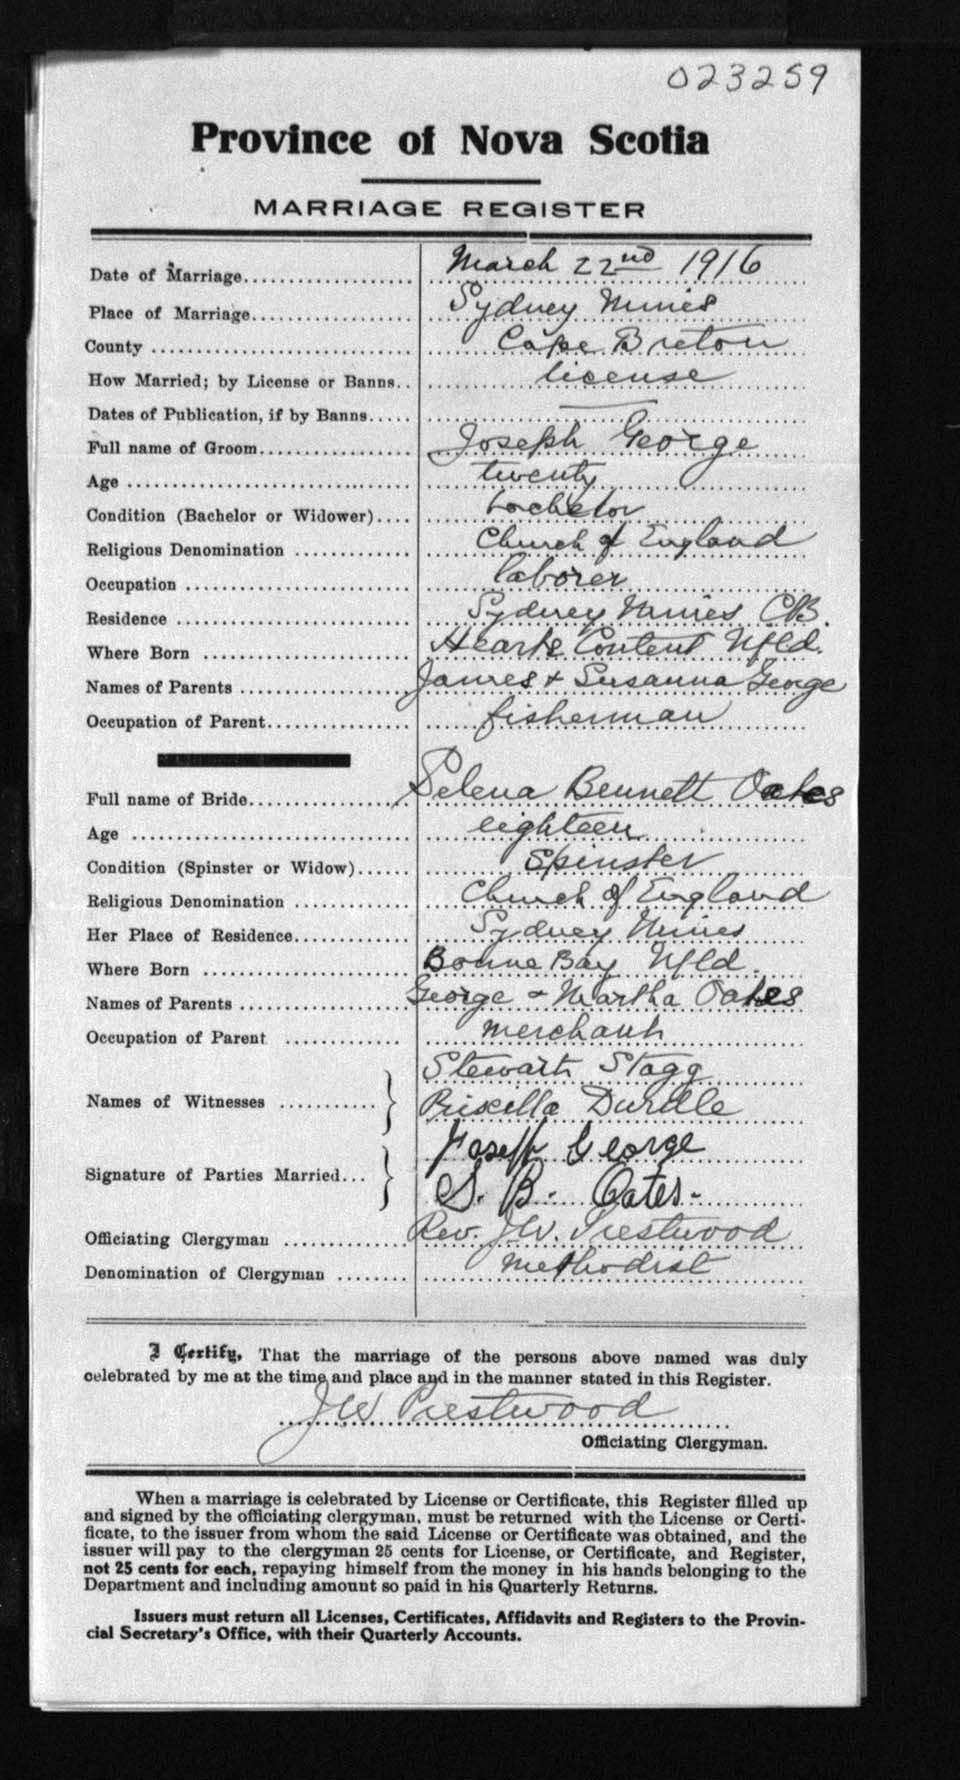 023259
Province of Nova Scotia
MARRIAGE REGISTER
Date of Marriage.................... March 22nd 1916
Place of Marriage.................. Sydney Mines
County ............................. Cape Breton
How Married; by License or Banns.. license
Dates of Publication, if by Banns..... —
Full name of Groom................. Joseph George
Age ................................ twenty
Condition (Bachelor or Widower).... bachelor
Religious Denomination ............. Church of England
Occupation ......................... laborer
Residence .......................... Sydney Mines CB.
Where Born ........................ Hearts Content Nfld.
Names of Parents ................... James & Susanna George
Occupation of Parent................ fisherman
Full name of Bride.................. Selena Bennett Oakes
Age ................................ eighteen
Condition (Spinster or Widow)...... Spinster
Religious Denomination ............. Church of England
Her Place of Residence............. Sydney Mines
Where Born ........................ Bonne Bay Nfld.
Names of Parents ................... George & Martha Oakes
Occupation of Parent ............. merchant
Stewart Stagg
Names of Witnesses ...........
Priscilla Durdle
Joseph George
Signature of Parties Married...
S. B. Oates-
Officiating Clergyman .............. Rev. J.W. Prestwood
Denomination of Clergyman ........ Methodist
I Certify, That the marriage of the persons above named was duly
celebrated by me at the time and place and in the manner stated in this Register.
JW Prestwood
Officiating Clergyman.
When a marriage is celebrated by License or Certificate, this Register filled up
and signed by the officiating clergyman, must be returned with the License or Certi-
ficate, to the issuer from whom the said License or Certificate was obtained, and the
issuer will pay to the clergyman 25 cents for License, or Certificate, and Register,
not 25 cents for each, repaying himself from the money in his hands belonging to the
Department and including amount so paid in his Quarterly Returns.
Issuers must return all Licenses, Certificates, Affidavits and Registers to the Provin-
cial Secretary's Office, with their Quarterly Accounts.